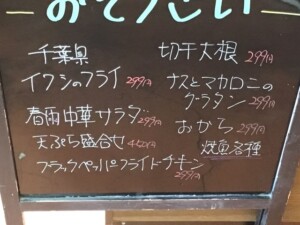 おそうざい
千葉県
イワシのフライ 299円
春雨中華サラダ 299円
天ぷら盛合せ 450円
ブラックペッパーフライドチキン
299円
切干大根 299円
ナスとマカロニの
グラタン 299円
おから 299円
焼魚各種